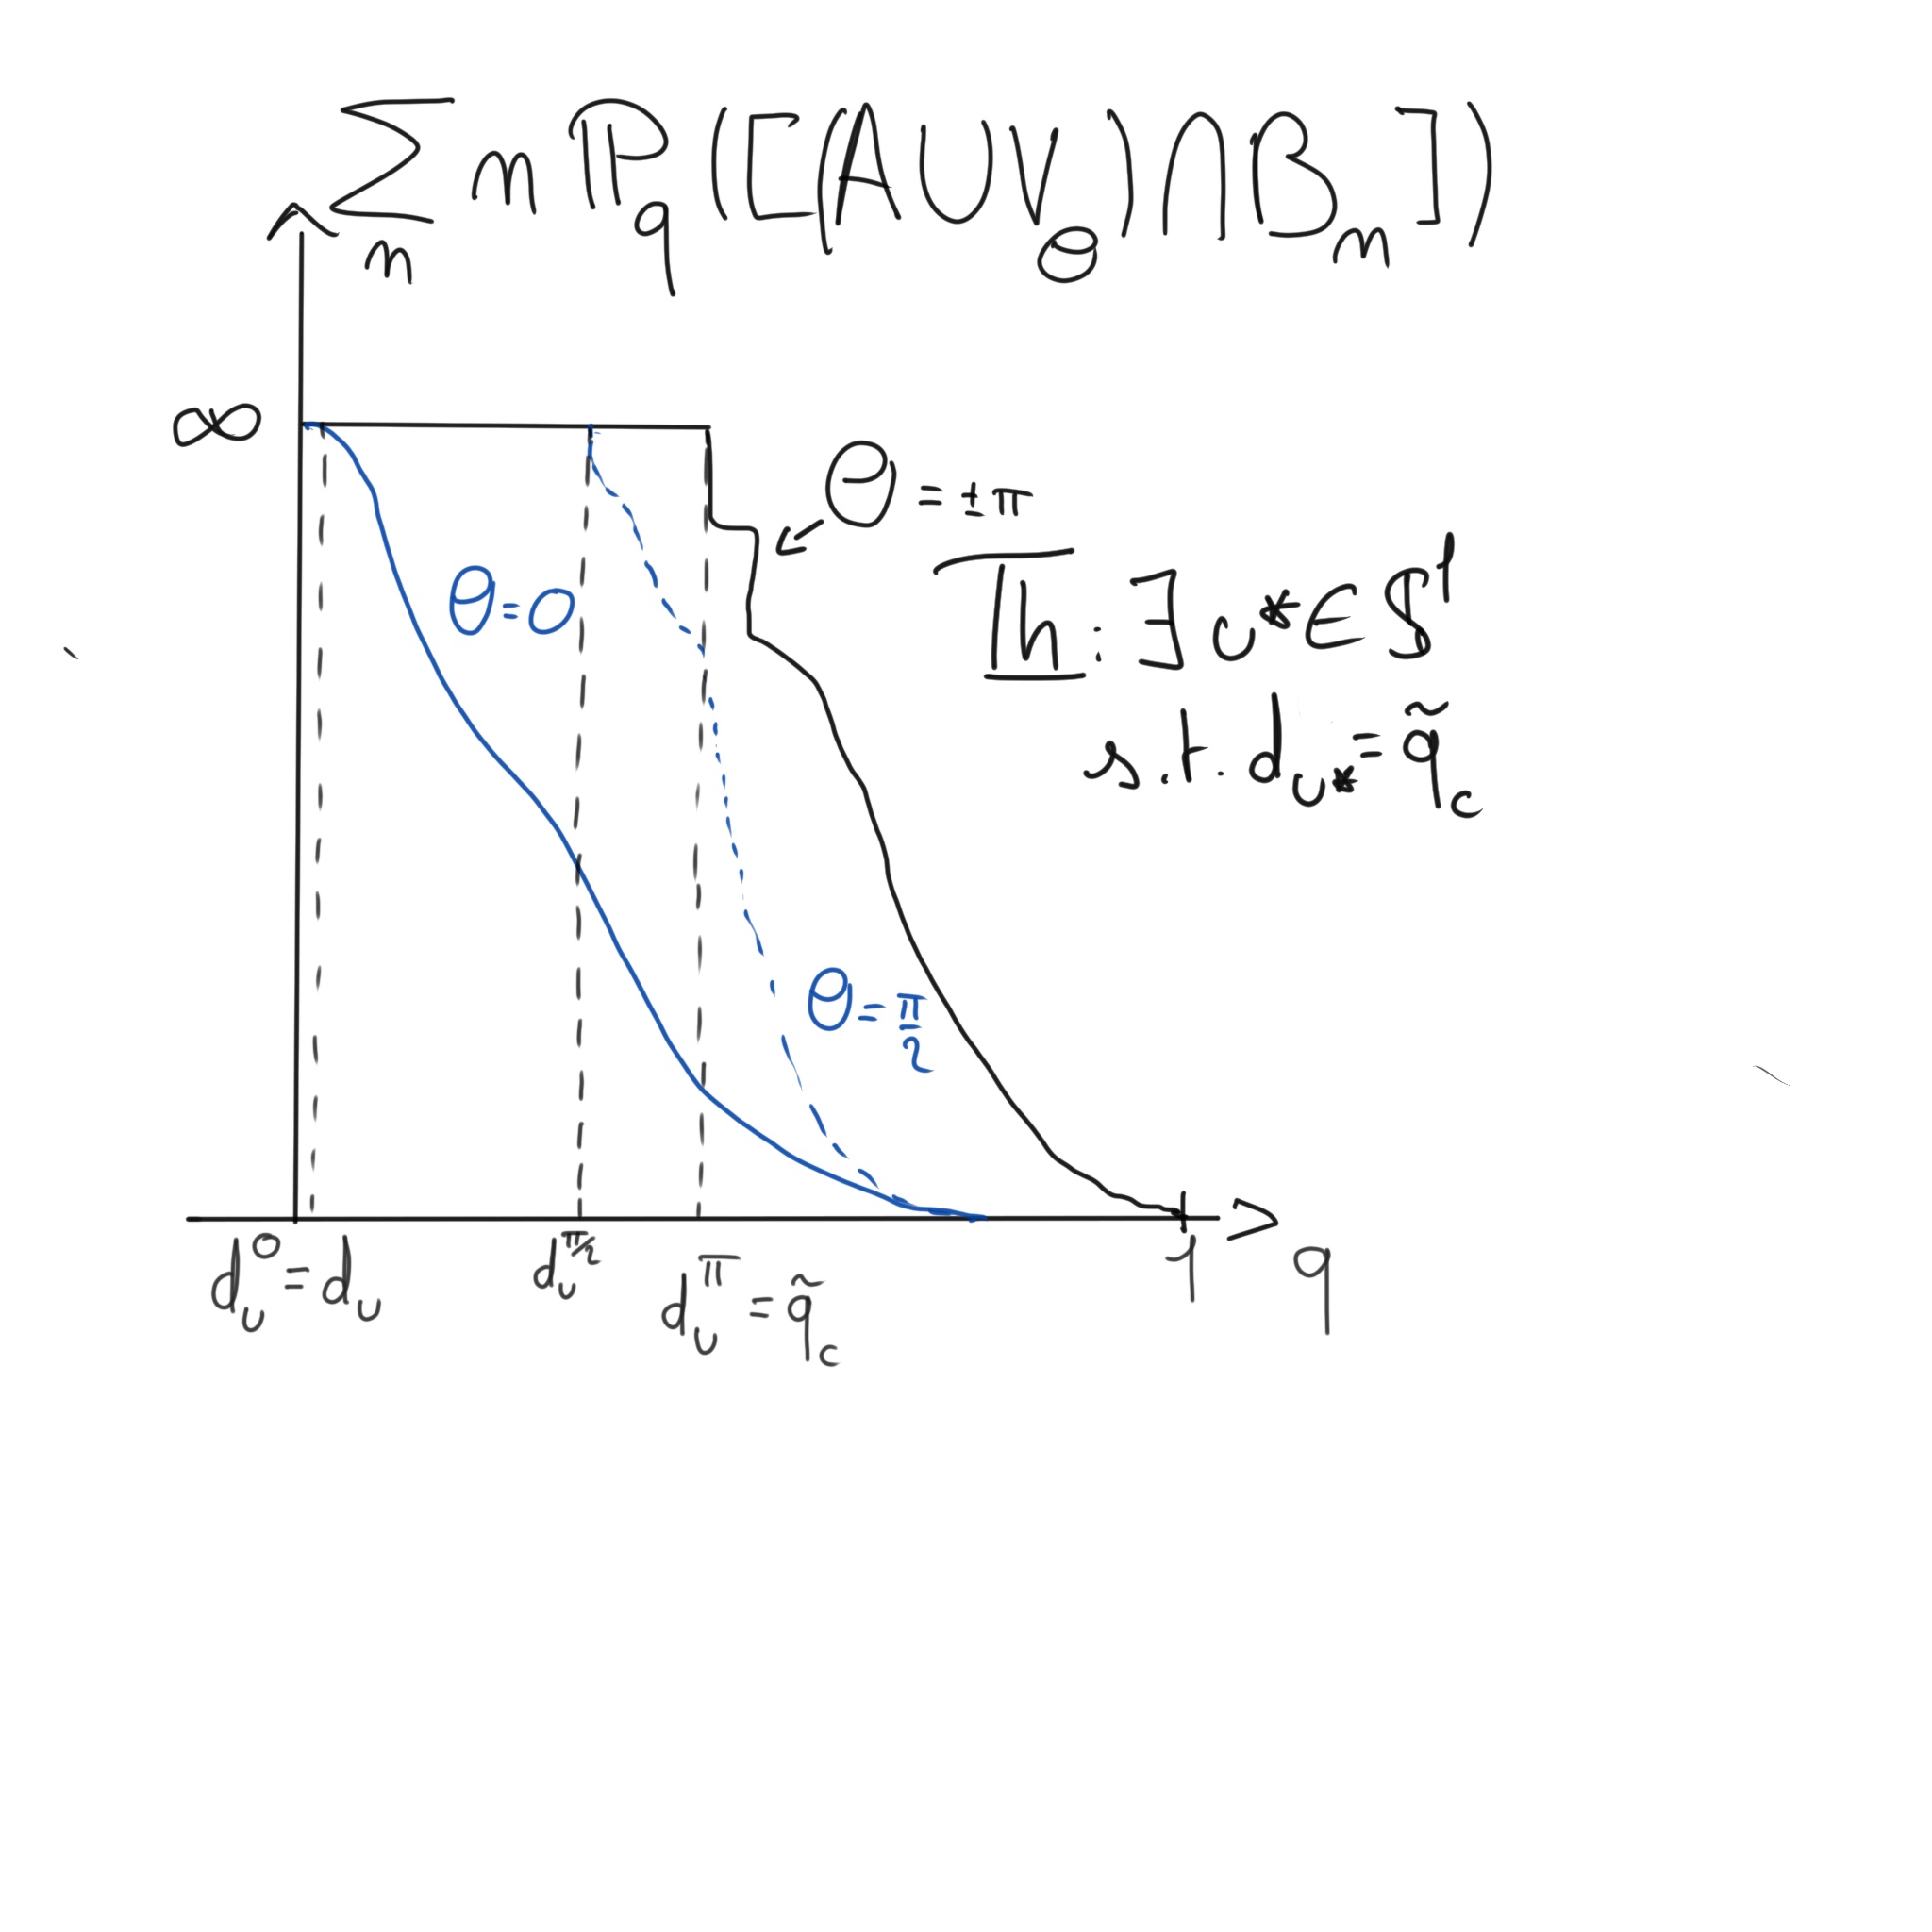 ∑ₙ n ℙ_q([(A∪V_θ)∩Bₙ])
∞
θ=±π
Th: ∃ u*∈S¹
s.t. d_{u*}=q̃_c
θ=0
θ=π/2
d_u^0=d_u
d_u^{π/2}
d_u^π=q̃_c
1
q